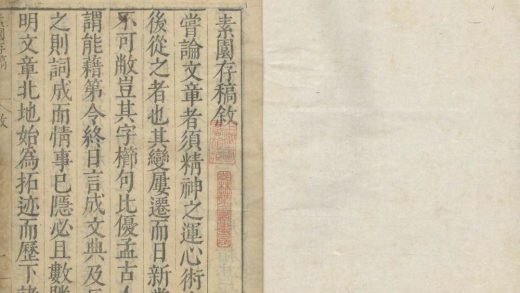 素園存稿敘
嘗論文章者須精神之運心術
後從之者也其變屢遷而日新
不可敝豈其字櫛句比優孟古
謂能藉第令終日言成文典及
之則詞成而情事已隱必且數
明文章北地始為拓迹而歷下
素園存稿 敘